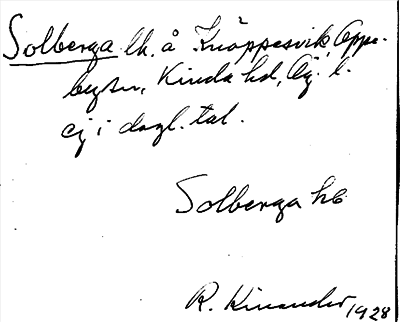 Solberga lh. å Knöppesvik, Oppe-
bysn, Kinda hd, Ög. l.
ej i dagl. tal.
Solberga hb
R. Kinander 1928